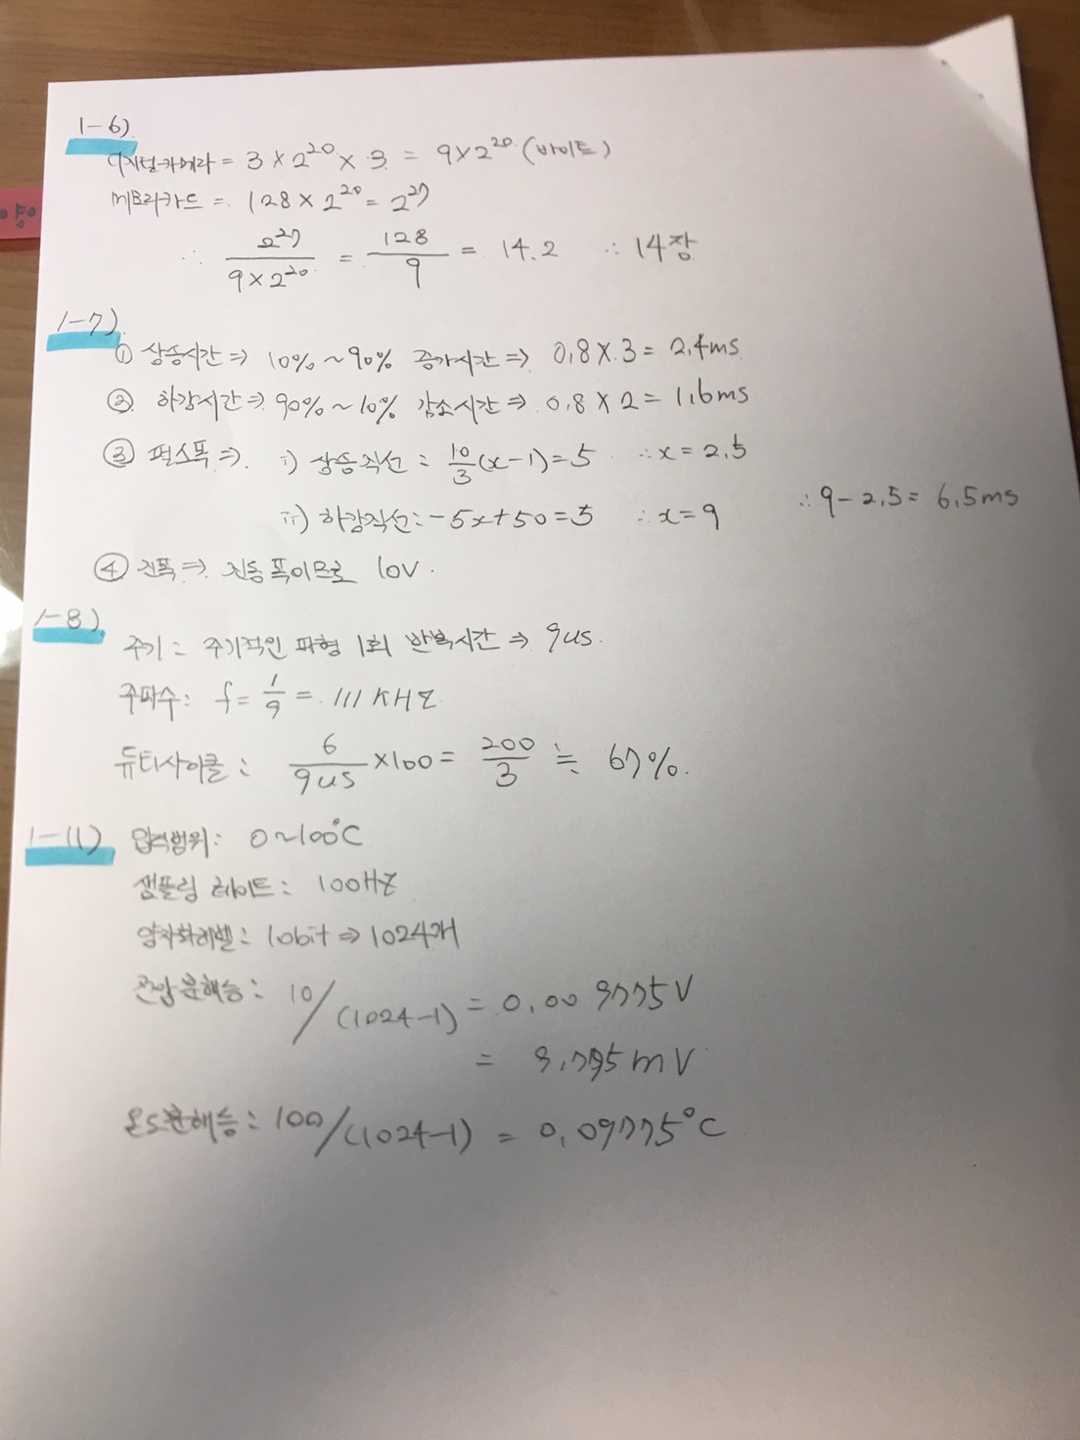 1-6)
디지털카메라 = 3 × 2^20 × 3 = 9×2^20 (바이트)
메모리카드 = 128 × 2^20 = 2^27
∴ 2^27 / 9×2^20 = 128 / 9 = 14.2 ∴ 14장
양
1-7)
① 상승시간 ⇒ 10% ~ 90% 증가시간 ⇒ 0.8 × 3 = 2.4ms
② 하강시간 ⇒ 90% ~ 10% 감소시간 ⇒ 0.8 × 2 = 1.6ms
③ 펄스폭 ⇒ i) 상승직선 : 10/3 (x-1) = 5 ∴ x = 2.5
ii) 하강직선 : -5x+50 = 5 ∴ x = 9 ∴ 9-2.5 = 6.5ms
④ 진폭 ⇒ 진동폭이므로 10V.
1-8)
주기 : 주기적인 파형 1회 반복시간 ⇒ 9us.
주파수 : f = 1/9 = 111 KHZ
듀티사이클 : 6 / 9us ×100 = 200 / 3 ≒ 67%.
1-11) 입력범위 : 0 ~ 100°C
샘플링 레이트 : 100HZ
양자화레벨 : 10bit ⇒ 1024개
전압분해능 : 10/(1024-1) = 0.009775V
= 9.775mV
온도분해능 : 100/(1024-1) = 0.09775°C